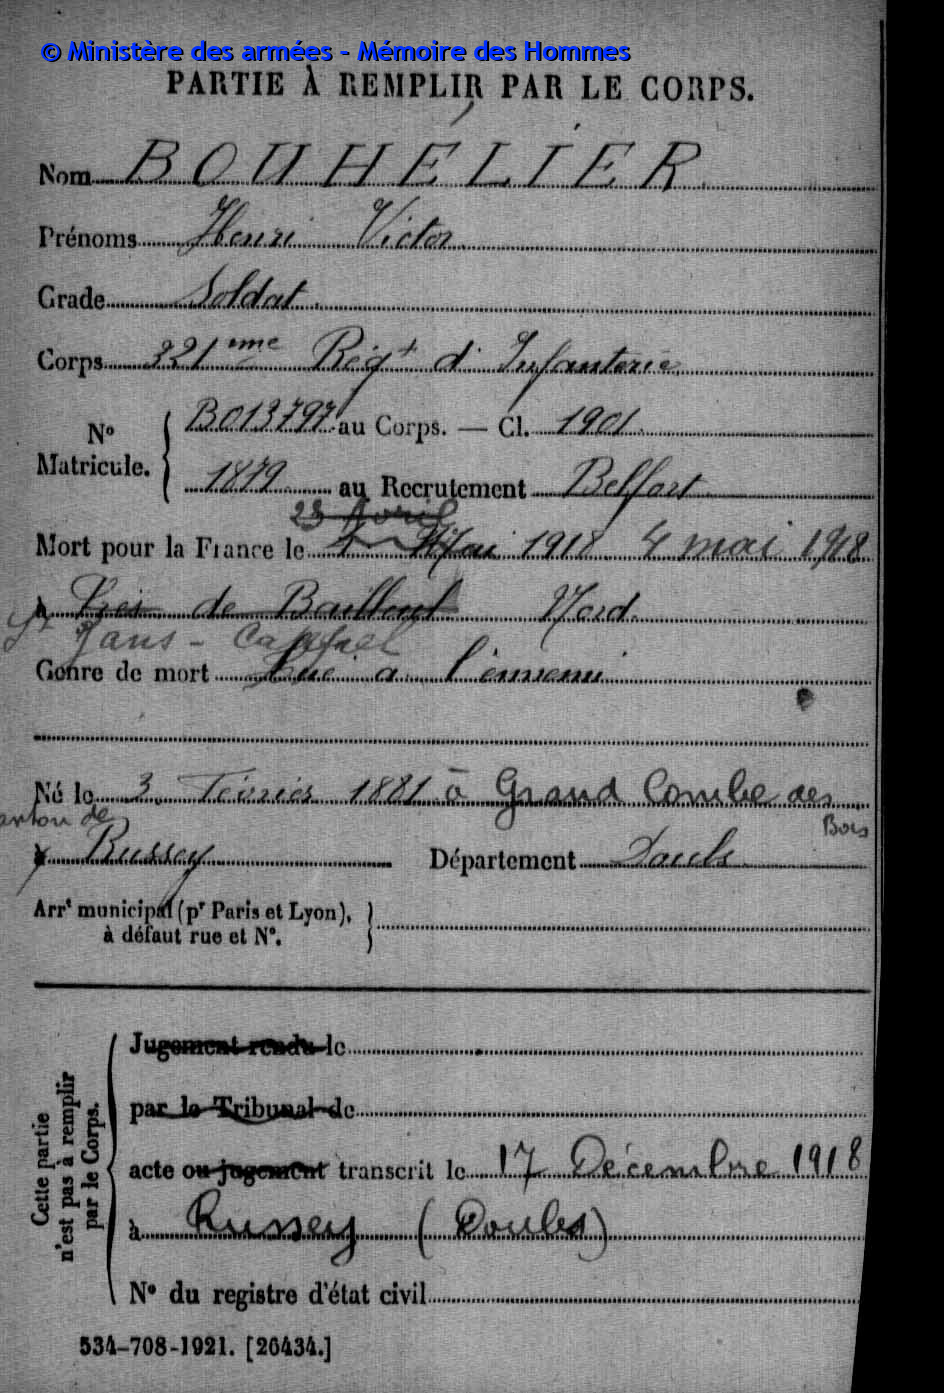 © Ministère des armées - Mémoire des Hommes
PARTIE À REMPLIR PAR LE CORPS.
Nom BOUHÉLIER
Prénoms Henri Victor
Grade Soldat.
Corps 321eme Régt d'Infanterie
No Matricule. { B013797 au Corps. — Cl. 1901.
1879 au Recrutement Belfort
23 Avril
Mort pour la France le Mai 1918 4 mai 1918
à Près de Bailleul Nord.
St Jans-Cappel
Genre de mort Tué a l'ennemi
Né le 3 Février 1881 à Grand Combe des
Bois
canton de
à Russey Département Doubs
Arrt municipal (pr Paris et Lyon),
à défaut rue et No. }
Cette partie
n'est pas à remplir
par le Corps.
Jugement rendu le
par le Tribunal de
acte ou jugement transcrit le 17 Décembre 1918
à Russey (Doubs)
No du registre d'état civil
534-708-1921. [26434.]